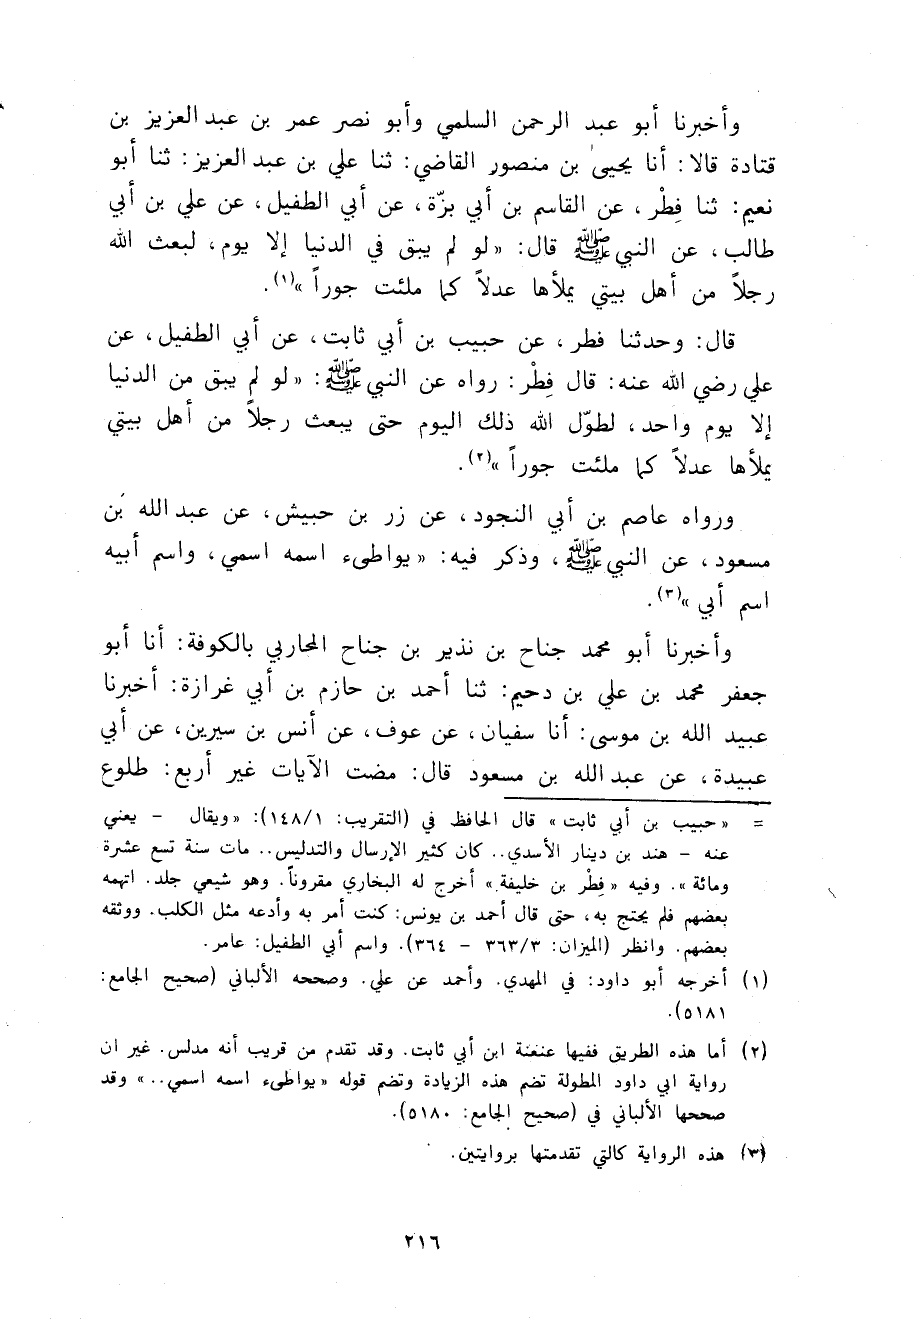 وأخبرنا أبو عبد الرحمن السلمي وأبو نصر عمر بن عبد العزيز بن
قتادة قالا: أنا يحيى بن منصور القاضي: ثنا علي بن عبد العزيز: ثنا أبو
نعيم: ثنا فِطْر، عن القاسم بن أبي بزّة، عن أبي الطفيل، عن علي بن أبي
طالب، عن النبي ﷺ قال: «لو لم يبق في الدنيا إلا يوم، لبعث الله
رجلاً من أهل بيتي يملأها عدلاً كما ملئت جوراً»(١).
قال: وحدثنا فطر، عن حبيب بن أبي ثابت، عن أبي الطفيل، عن
علي رضي الله عنه: قال فِطْر: رواه عن النبي ﷺ: «لو لم يبق من الدنيا
إلا يوم واحد، لطوّل الله ذلك اليوم حتى يبعث رجلاً من أهل بيتي
يملأها عدلاً كما ملئت جوراً»(٢).
ورواه عاصم بن أبي النجود، عن زر بن حبيش، عن عبد الله بن
مسعود، عن النبي ﷺ، وذكر فيه: «يواطىء اسمه اسمي، واسم أبيه
اسم أبي»(٣).
وأخبرنا أبو محمد جناح بن نذير بن جناح المحاربي بالكوفة: أنا أبو
جعفر محمد بن علي بن دحيم: ثنا أحمد بن حازم بن أبي غرازة: أخبرنا
عبيد الله بن موسى: أنا سفيان، عن عوف، عن أنس بن سيرين، عن أبي
عبيدة، عن عبد الله بن مسعود قال: مضت الآيات غير أربع: طلوع
= «حبيب بن أبي ثابت» قال الحافظ في (التقريب: ١٤٨/١): «ويقال - يعني
عنه - هند بن دينار الأسدي.. كان كثير الإرسال والتدليس.. مات سنة تسع عشرة
ومائة». وفيه «فِطْر بن خليفة» أخرج له البخاري مقروناً. وهو شيعي جلد. اتهمه
بعضهم فلم يحتج به، حتى قال أحمد بن يونس: كنت أمر به وأدعه مثل الكلب. ووثقه
بعضهم. وانظر (الميزان: ٣٦٣/٣ - ٣٦٤). واسم أبي الطفيل: عامر.
(١) أخرجه أبو داود: في المهدي. وأحمد عن علي. وصححه الألباني (صحيح الجامع:
٥١٨١).
(٢) أما هذه الطريق ففيها عنعنة ابن أبي ثابت. وقد تقدم من قريب أنه مدلس. غير ان
رواية ابي داود المطولة تضم هذه الزيادة وتضم قوله «يواطىء اسمه اسمي..» وقد
صححها الألباني في (صحيح الجامع: ٥١٨٠).
(٣) هذه الرواية كالتي تقدمتها بروايتين.
٢١٦